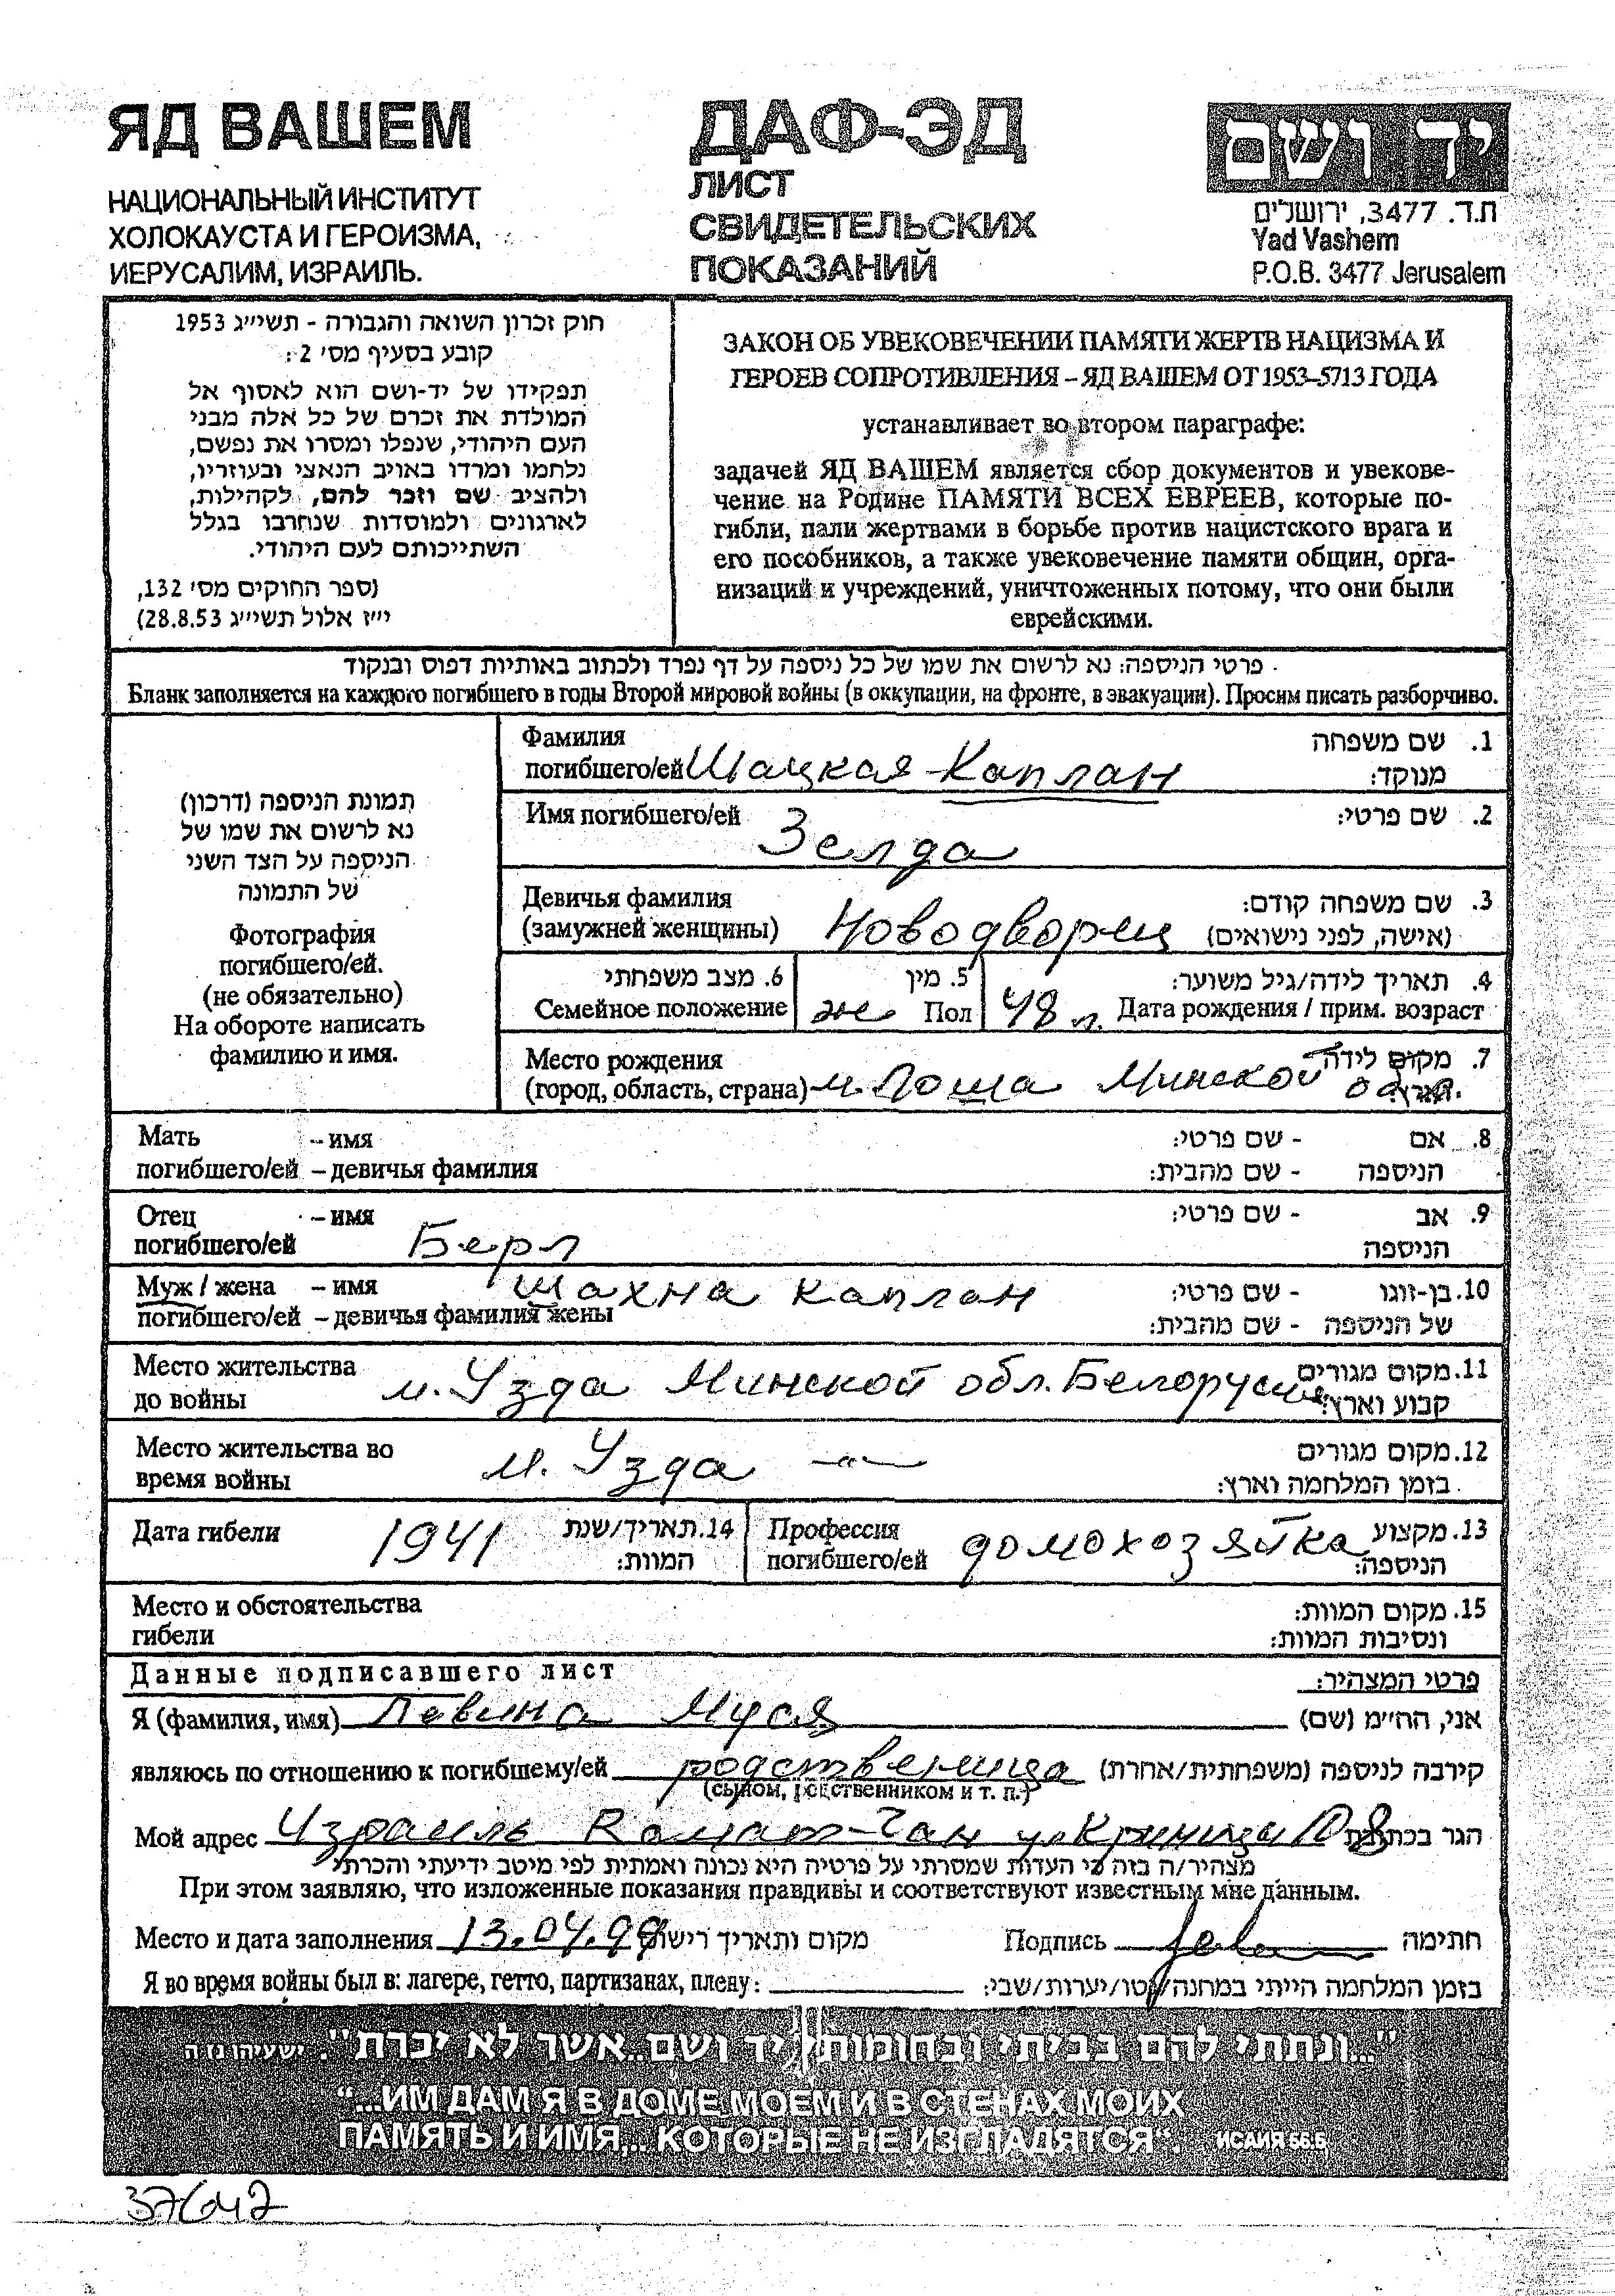 ЯД ВАШЕМ
НАЦИОНАЛЬНЫЙ ИНСТИТУТ
ХОЛОКАУСТА И ГЕРОИЗМА,
ИЕРУСАЛИМ, ИЗРАИЛЬ.
ДАФ-ЭД
ЛИСТ
СВИДЕТЕЛЬСКИХ
ПОКАЗАНИЙ
יד ושם
ת.ד. 3477, ירושלים
Yad Vashem
P.O.B. 3477 Jerusalem
חוק זכרון השואה והגבורה - תשי״ג 1953
קובע בסעיף מס׳ 2:
תפקידו של יד-ושם הוא לאסוף אל
המולדת את זכרם של כל אלה מבני
העם היהודי, שנפלו ומסרו את נפשם,
נלחמו ומרדו באויב הנאצי ובעוזריו,
ולהציב שם וזכר להם, לקהילות,
לארגונים ולמוסדות שנחרבו בגלל
השתייכותם לעם היהודי.
(ספר החוקים מס׳ 132,
י״ז אלול תשי״ג 28.8.53)
ЗАКОН ОБ УВЕКОВЕЧЕНИИ ПАМЯТИ ЖЕРТВ НАЦИЗМА И
ГЕРОЕВ СОПРОТИВЛЕНИЯ – ЯД ВАШЕМ ОТ 1953–5713 ГОДА
устанавливает во втором параграфе:
задачей ЯД ВАШЕМ является сбор документов и увекове-
чение на Родине ПАМЯТИ ВСЕХ ЕВРЕЕВ, которые по-
гибли, пали жертвами в борьбе против нацистского врага и
его пособников, а также увековечение памяти общин, орга-
низаций и учреждений, уничтоженных потому, что они были
еврейскими.
פרטי הניספה: נא לרשום את שמו של כל ניספה על דף נפרד ולכתוב באותיות דפוס ובנקוד
Бланк заполняется на каждого погибшего в годы Второй мировой войны (в оккупации, на фронте, в эвакуации). Просим писать разборчиво.
תמונת הניספה (דרכון)
נא לרשום את שמו של
הניספה על הצד השני
של התמונה
Фотография
погибшего/ей.
(не обязательно)
На обороте написать
фамилию и имя.
Фамилия 1. שם משפחה
погибшего/ей Шацкая-Каплан מנוקד:
Имя погибшего/ей 2. שם פרטי:
Зелда
Девичья фамилия 3. שם משפחה קודם:
(замужней женщины) Новодворец (אישה, לפני נישואים)
6. מצב משפחתי 5. מין 4. תאריך לידה/גיל משוער:
Семейное положение ж Пол 48 л. Дата рождения / прим. возраст
Место рождения 7. מקום לידה
(город, область, страна) м. Лоша Минской обл.
Мать – имя 8. אם - שם פרטי:
погибшего/ей – девичья фамилия הניספה - שם מהבית:
Отец – имя 9. אב - שם פרטי:
погибшего/ей Берл הניספה
Муж / жена – имя Шахна Каплан 10. בן-זוגו - שם פרטי:
погибшего/ей – девичья фамилия жены של הניספה - שם מהבית:
Место жительства 11. מקום מגורים
до войны м. Узда Минской обл. Белоруссия קבוע וארץ:
Место жительства во 12. מקום מגורים
время войны м. Узда —"— בזמן המלחמה וארץ:
Дата гибели 1941 14. תאריך/שנת המוות:
Профессия погибшего/ей домохозяйка 13. מקצוע הניספה:
Место и обстоятельства 15. מקום המוות:
гибели ונסיבות המוות:
Данные подписавшего лист פרטי המצהיר:
Я (фамилия, имя) Левина Муся אני, הח״מ (שם)
являюсь по отношению к погибшему/ей родственница קירבה לניספה (משפחתית/אחרת)
(сыном, родственником и т. п.)
Мой адрес Израиль Рамат-Ган ул Криници 108 הגר בכתובת
מצהיר/ה בזה כי העדות שמסרתי על פרטיה היא נכונה ואמתית לפי מיטב ידיעתי והכרתי
При этом заявляю, что изложенные показания правдивы и соответствуют известным мне данным.
Место и дата заполнения 13.04.99 מקום ותאריך רישום Подпись חתימה
Я во время войны был в: лагере, гетто, партизанах, плену: בזמן המלחמה הייתי במחנה/גטו/יערות/שבי:
"...ונתתי להם בביתי ובחומותי יד ושם...אשר לא יכרת". ישעיהו נו ה
"...ИМ ДАМ Я В ДОМЕ МОЕМ И В СТЕНАХ МОИХ
ПАМЯТЬ И ИМЯ,.. КОТОРЫЕ НЕ ИЗГЛАДЯТСЯ". ИСАИЯ 56.5